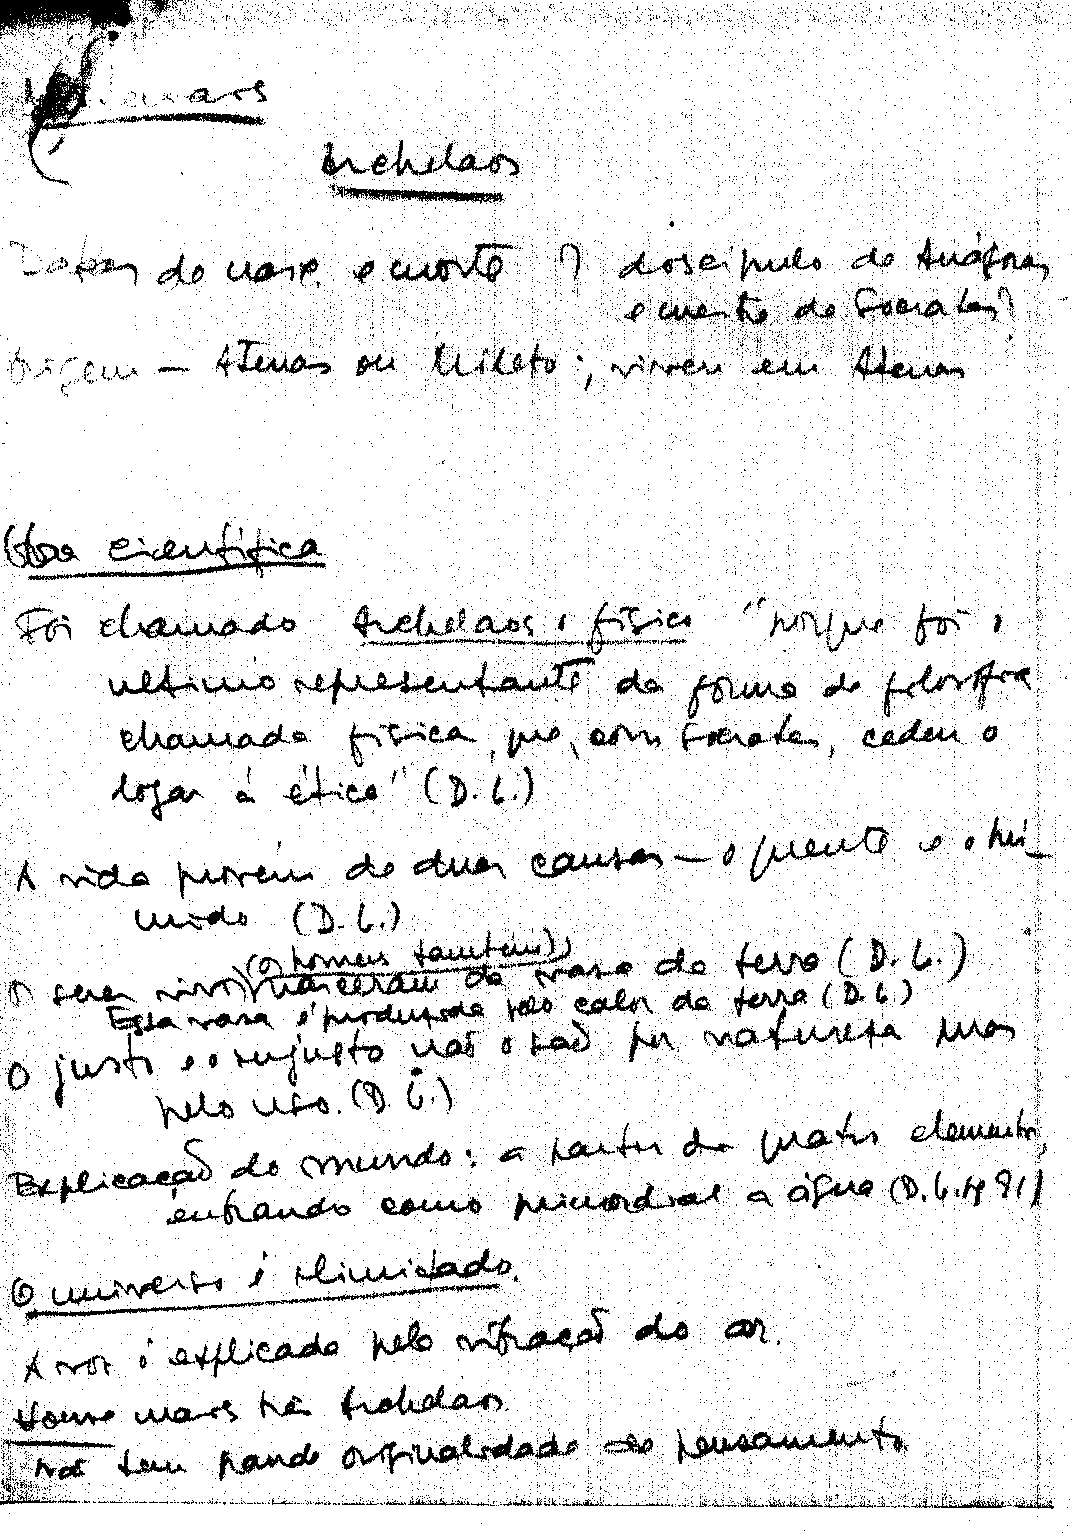 Archelaos
Datas de nasc. e morte ? discípulo de Anáxgoras
e mestre de Socrates?
Origem – Atenas ou Mileto; viveu em Atenas
Obra científica
Foi chamado Archelaos o físico "porque foi o
ultimo representante da forma de filosofia
chamada física, que, com Socrates, cedeu o
logar à ética" (D. L.)
A vida provém de duas causas – o quente e o hú-
mido (D. L.)
(os homens tambem)
Os seres vivos nasceram da vasa da terra (D. L.)
Essa vasa é produzida pelo calor da terra (D. L.)
O justo e o injusto não o são por natureza mas
pelo uso. (D. L.)
Explicação do mundo: a partir de quatro elementos,
entrando como primordial a água (D. L. pg 91)
O universo é ilimitado.
A voz é explicada pela vibração do ar.
Houve mais três Archelaos
Não tem grande originalidade de pensamento